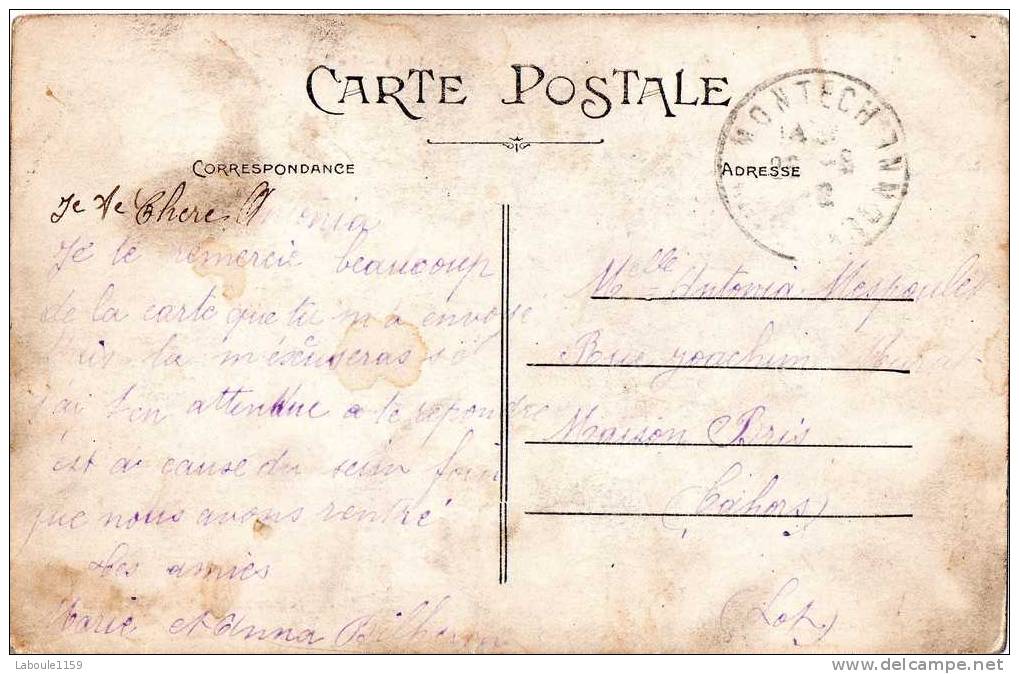 CARTE POSTALE
CORRESPONDANCE
ADRESSE
MONTECH
Chere Antonia
Je te remercie beaucoup
de la carte que tu m'a envoyé
tu m'éxcuseras si
j'ai attendue a te repondre
est a cause du foin
que nous avons rentré
tes amies
Marie et Anna
Melle Antonia Mespoulet
Rue Joachim Murat
Maison Bris
(Cahors)
(Lot)
Laboule1159
delcampe.net